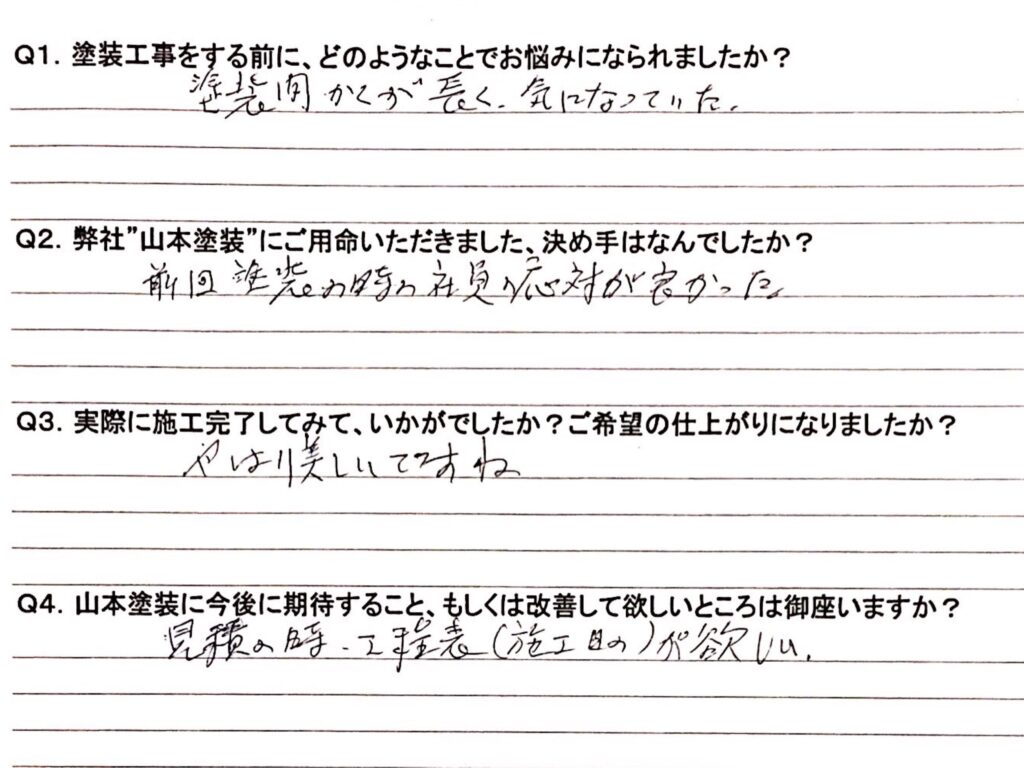 Q1. 塗装工事をする前に、どのようなことでお悩みになられましたか？
塗装間かくが長く、気になっていた。
Q2. 弊社”山本塗装”にご用命いただきました、決め手はなんでしたか？
前回塗装の時の社員の応対が良かった。
Q3. 実際に施工完了してみて、いかがでしたか？ご希望の仕上がりになりましたか？
やはり美しいですね
Q4. 山本塗装に今後に期待すること、もしくは改善して欲しいところは御座いますか？
見積の時、工程表(施工目の)が欲しい。